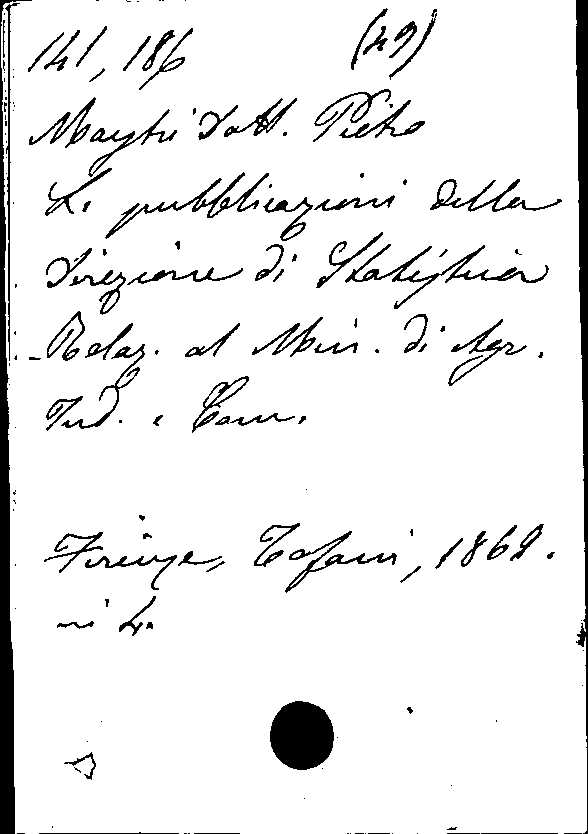 141, 186 (49)
Maestri Dott. Pietro
Le pubblicazioni della
Direzione di Statistica
- Relaz. al Min. di Agr.
Ind. e Com.
Firenze, Tofani, 1869.
in 4.